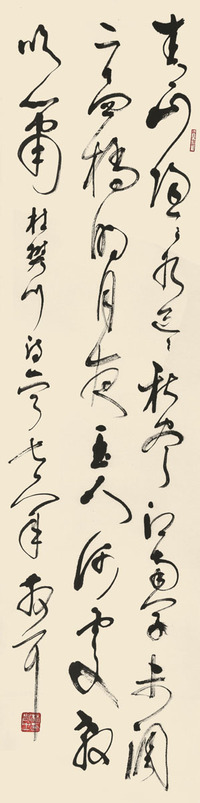 青山隐隐水迢迢秋尽江南草未凋
二十四桥明月夜玉人何处教
吹箫 杜樊川诗 七八年